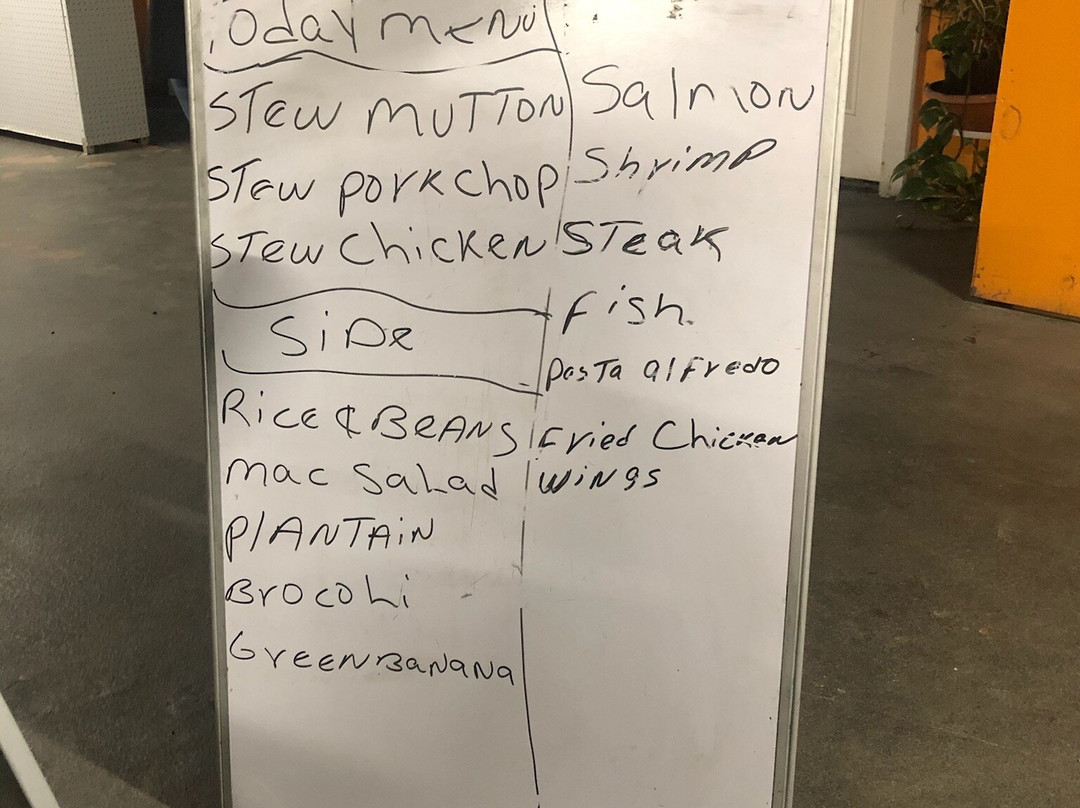 Today menu
STew muTTON
STew porkchop
STew ChicKeN
SiDe
Rice & BeANS
mac SaLad
PlANTAiN
BrocoLi
GreenBaNaNa
Salmon
Shrimp
STeaK
Fish
PasTa alFredo
Fried Chicken
WiNgs